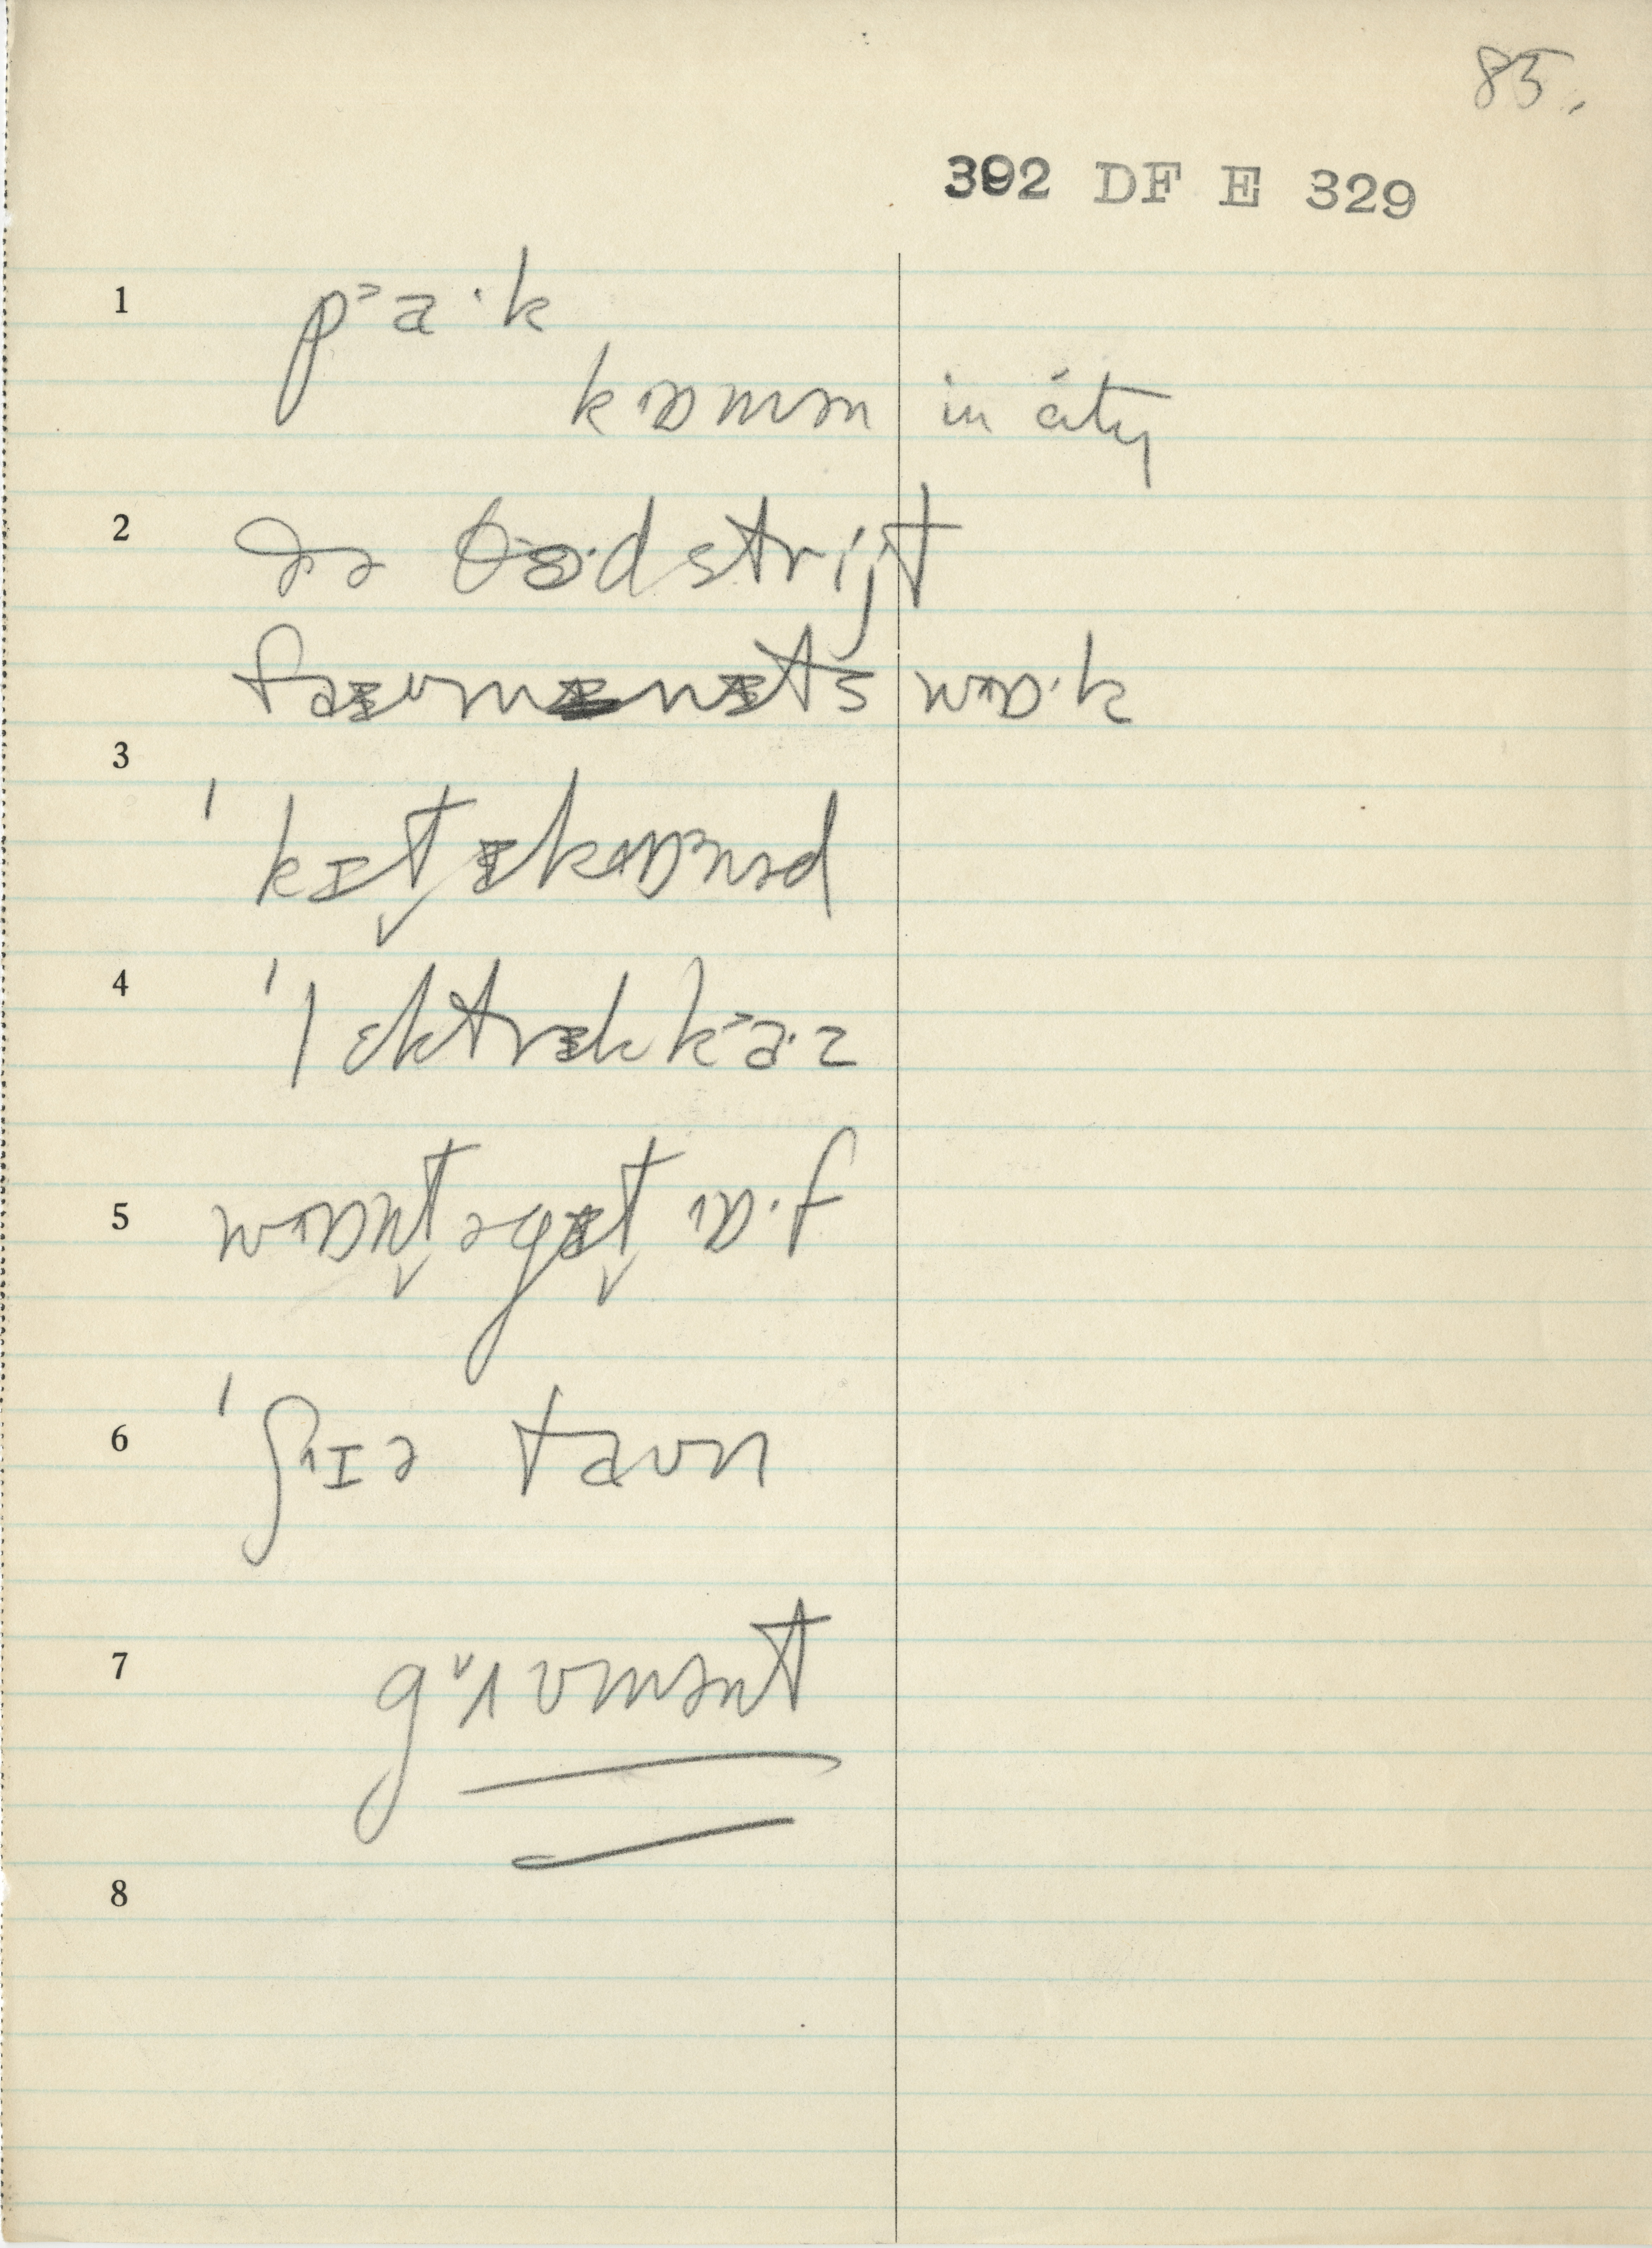 85.
392 DF E 329
1
pᵊa·k
kɒmən in city
2
ðə θɜ·d strijt
faɪv mɪnɪts wɒ·k
3
ˈkɪtɪkɒnəd
4
ˈlɛktrɪk kᵊa·z
5
wɒnt ə gɪt ɒ·f
6
ˈʃɪə taʊn
7
gʌvmənt
8